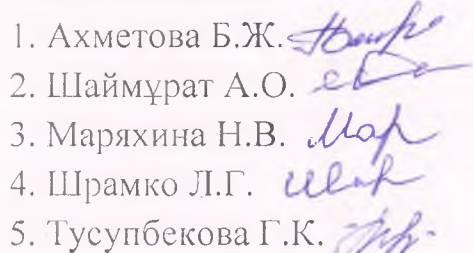 1. Ахметова Б.Ж.
2. Шаймұрат А.О.
3. Маряхина Н.В.
4. Шрамко Л.Г.
5. Тусупбекова Г.К.